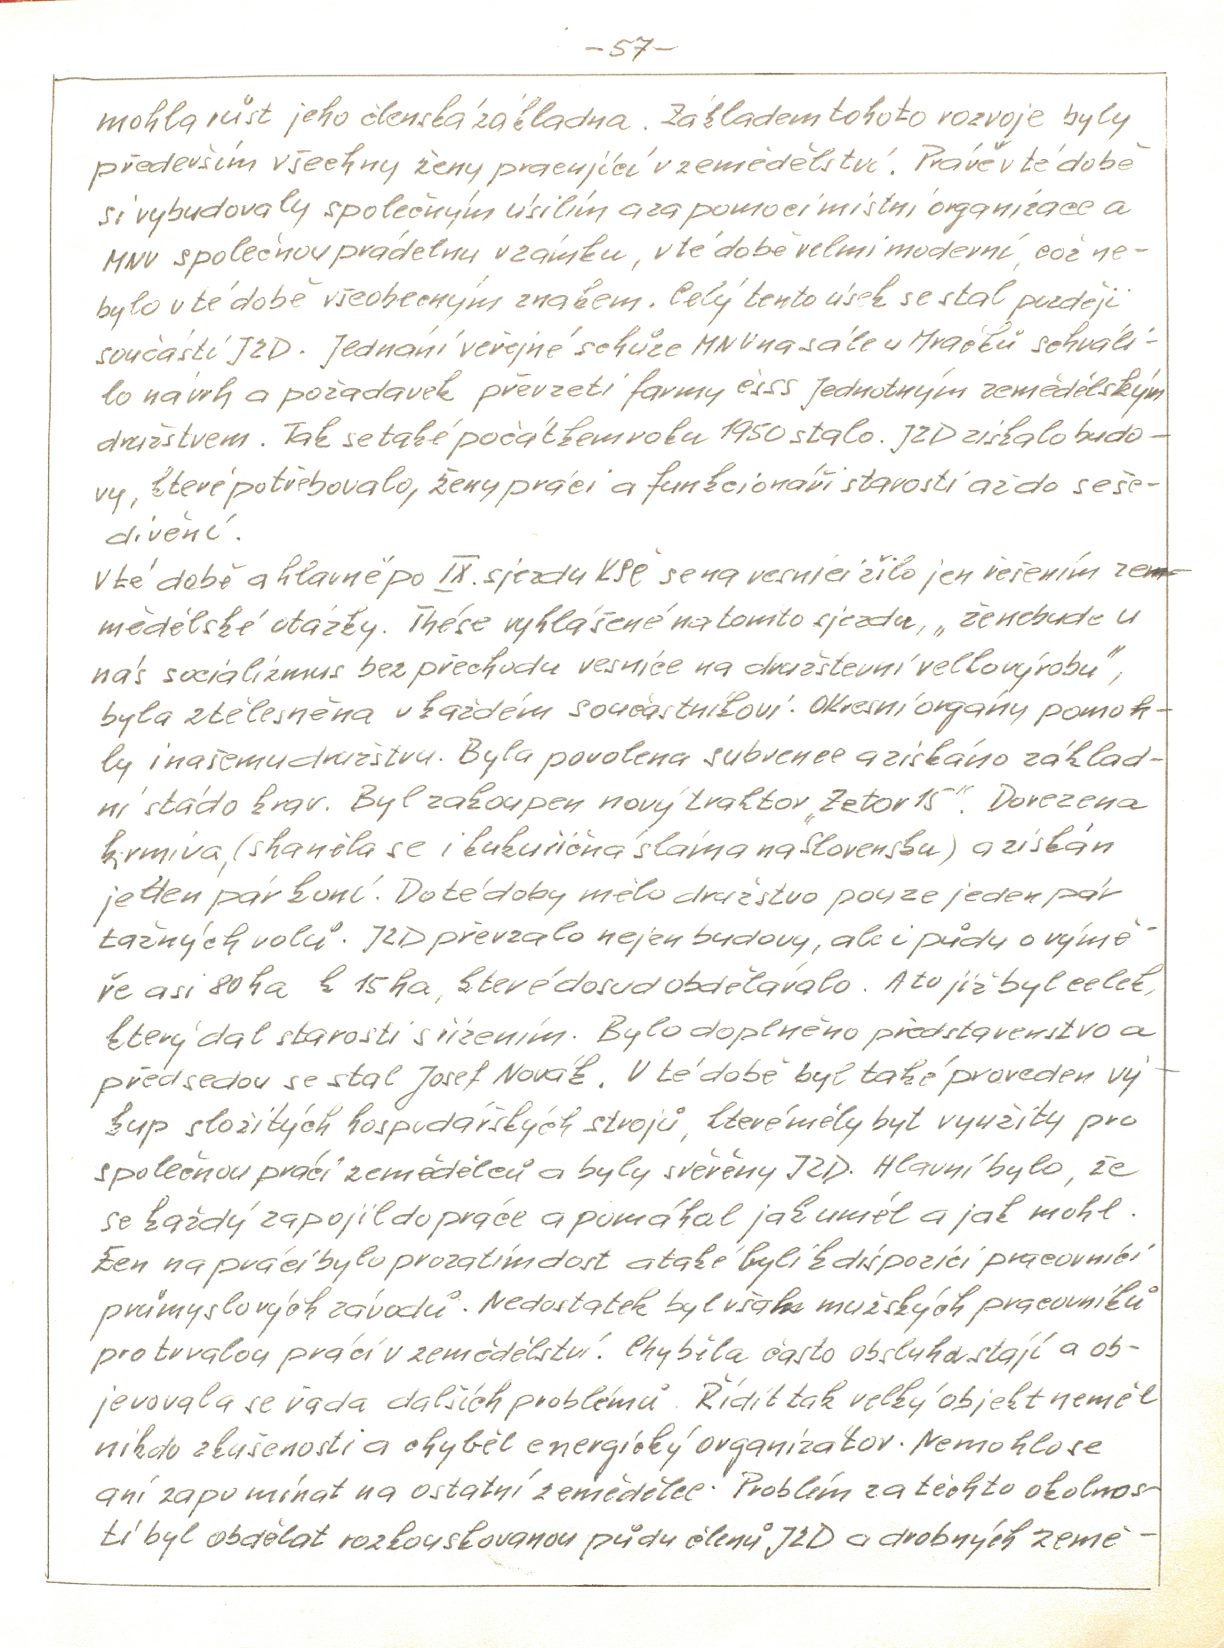 -57-
mohla růst jeho členská základna. Základem tohoto rozvoje byly
především všechny ženy pracující v zemědělství. Právě v té době
si vybudovaly společným úsilím a za pomoci místní organizace a
MNV společnou prádelnu v zámku, v té době velmi moderní, což ne-
bylo v té době všeobecným znakem. Celý tento úsek se stal později
součástí JZD. Jednání veřejné schůze MNV na sále u Mračků schváli-
lo návrh a požadavek převzetí farmy čsss Jednotným zemědělským
družstvem. Tak se také počátkem roku 1950 stalo. JZD získalo budo-
vy, které potřebovalo, ženy práci a funkcionáři starosti až do seše-
divění.
V té době a hlavně po IX. sjezdu KSČ se na vesnici žilo jen řešením zem-
mědělské otázky. Thése vyhlášené na tomto sjezdu, „že nebude u
nás socializmus bez přechodu vesnice na družstevní velkovýrobu",
byla ztělesněna v každém součástníkovi. Okresní orgány pomoh-
ly i našemu družstvu. Byla povolena subvence a získáno základ-
ní stádo krav. Byl zakoupen nový traktor „Zetor 15". Dovezena
krmiva, (sháněla se i kukuřičná sláma na Slovensku) a získán
jeden pár koní. Do té doby mělo družstvo pouze jeden pár
tažných volů. JZD převzalo nejen budovy, ale i půdu o výmě-
ře asi 80 ha k 15 ha, které dosud obdělávalo. A to již byl celek,
který dal starosti s řízením. Bylo doplněno představenstvo a
předsedou se stal Josef Novák. V té době byl také proveden vý-
kup složitých hospodářských strojů, které měly být využity pro
společnou práci zemědělců a byly svěřeny JZD. Hlavní bylo, že
se každý zapojil do práce a pomáhal jak uměl a jak mohl.
Žen na práci bylo prozatím dost a také byli k dispozici pracovníci
průmyslových závodů. Nedostatek byl však mužských pracovníků
pro trvalou práci v zemědělství. Chyběla často obsluha stájí a ob-
jevovala se řada dalších problémů. Řídit tak velký objekt neměl
nikdo zkušenosti a chyběl energický organizátor. Nemohlo se
ani zapomínat na ostatní zemědělce. Problém za těchto okolnos-
tí byl obdělat rozkouskovanou půdu členů JZD a drobných země-